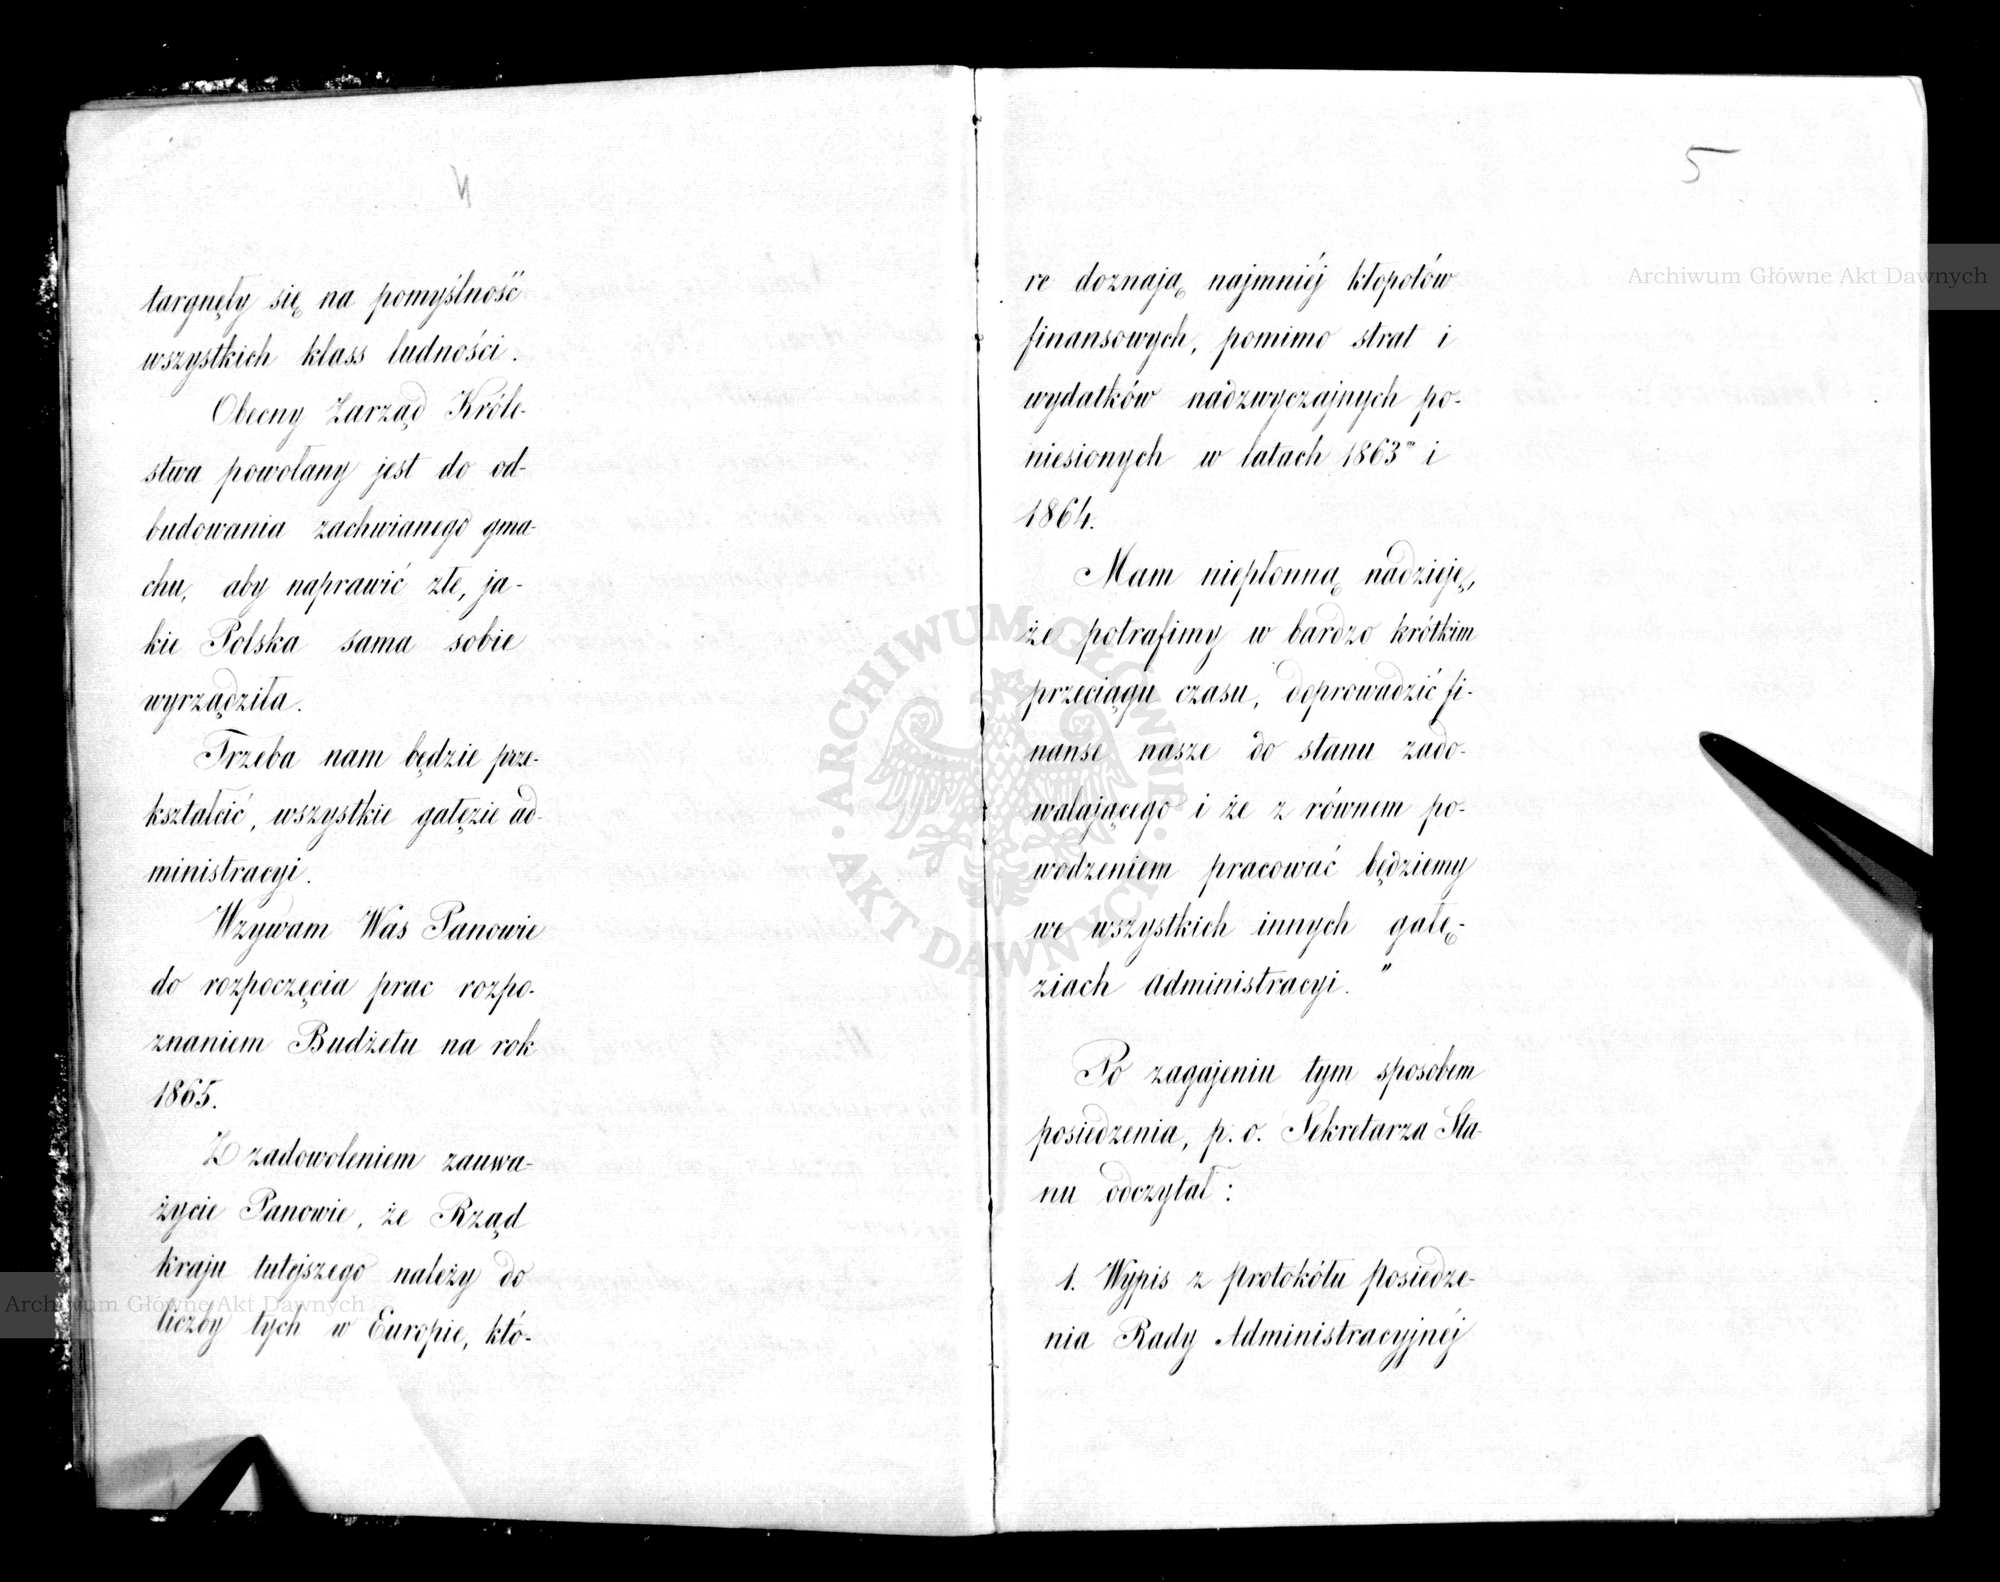 4
targnęły się na pomyślność
wszystkich klass ludności.
Obecny Zarząd Króle-
stwa powołany jest do od-
budowania zachwianego gma-
chu, aby naprawić złe, ja-
kie Polska sama sobie
wyrządziła.
Trzeba nam będzie prze-
kształcić, wszystkie gałęzie ad-
ministracyi.
Wzywam Was Panowie
do rozpoczęcia prac rozpo-
znaniem Budżetu na rok
1865.
Z zadowoleniem zauwa-
życie Panowie, że Rząd
kraju tutejszego należy do
liczby tych w Europie, któ-
5
re doznają najmniéj kłopotów
finansowych, pomimo strat i
wydatków nadzwyczajnych po-
niesionych w latach 1863m i
1864.
Mam niepłonną nadzieję,
że potrafimy w bardzo krótkim
przeciągu czasu, doprowadzić fi-
nanse nasze do stanu zado-
walającego i że z równem po-
wodzeniem pracować będziemy
we wszystkich innych gałę-
ziach administracyi."
Po zagajeniu tym sposobem
posiedzenia, p. o. Sekretarza Sta-
nu odczytał:
1. Wypis z protokółu posiedze-
nia Rady Administracyjnéj
Archiwum Główne Akt Dawnych
Archiwum Główne Akt Dawnych
· ARCHIWUM GŁÓWNE ·
AKT DAWNYCH